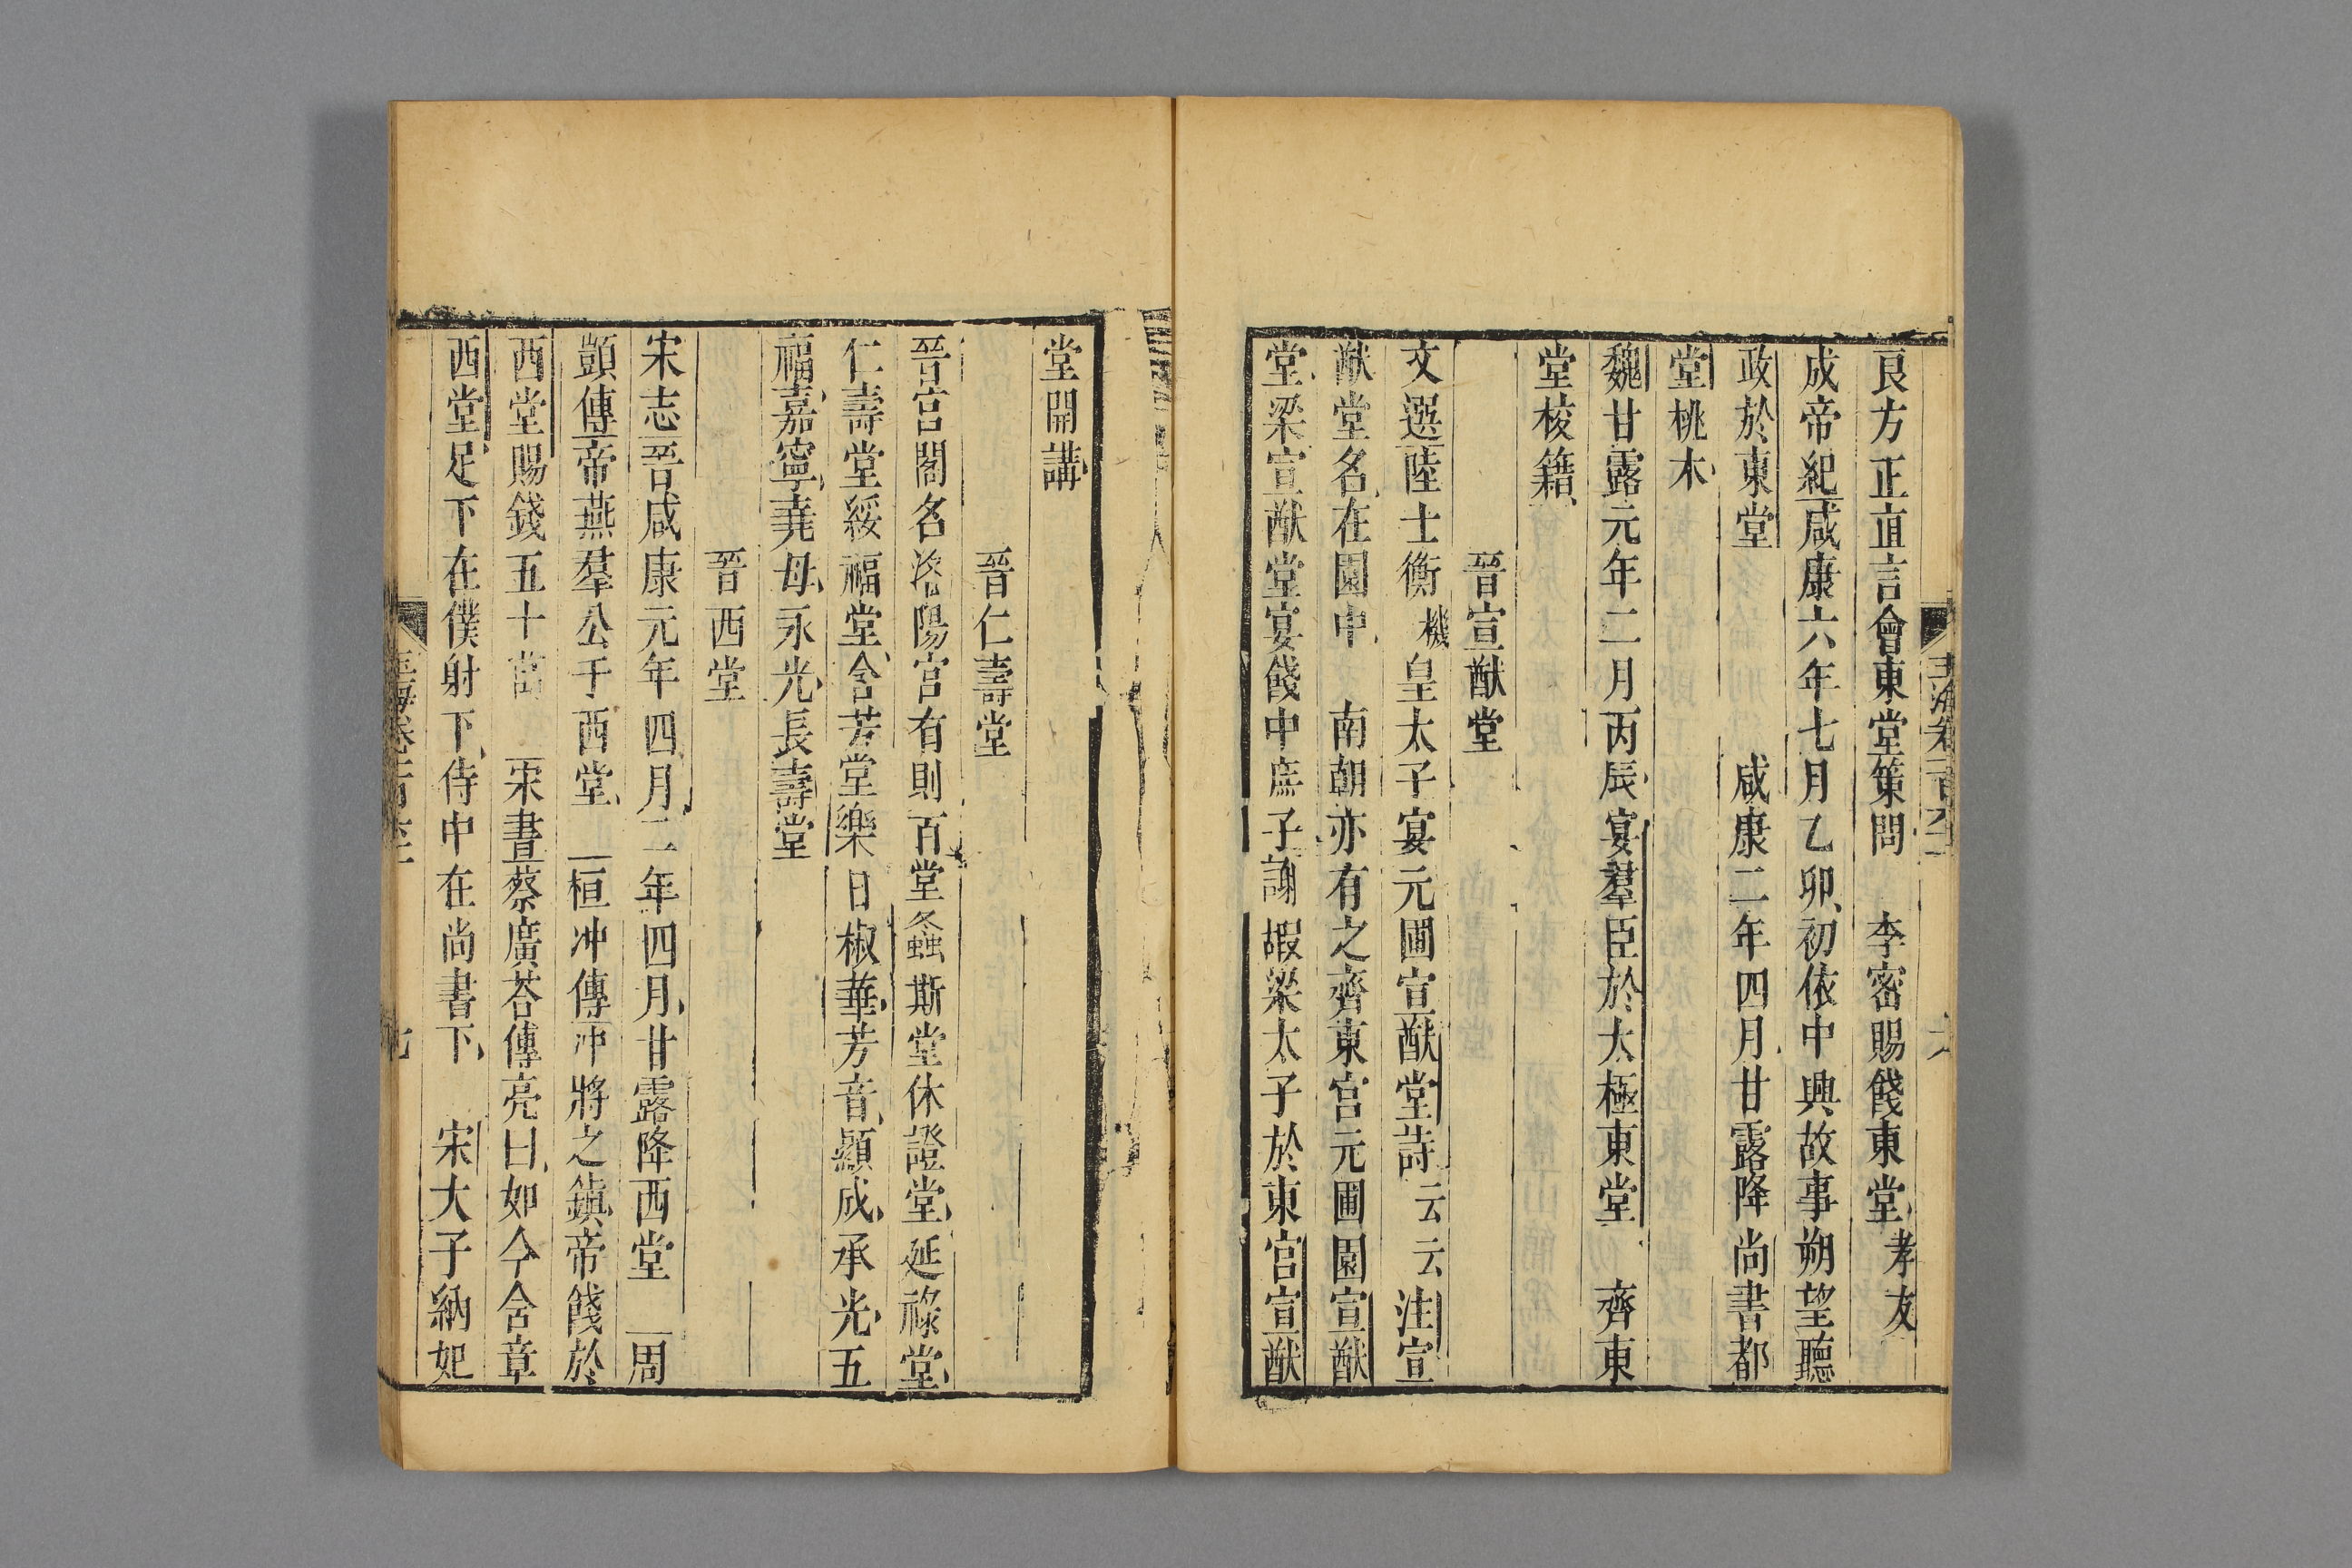 良方正直言會東堂策問　李密賜餞東堂孝友
成帝紀咸康六年七月乙卯初依中興故事朔望聽
政於東堂　咸康二年四月甘露降尚書都
堂桃木
魏甘露元年二月丙辰宴羣臣於太極東堂　齊東
堂校籍
晉宣猷堂
文選陸士衡機皇太子宴元圃宣猷堂詩云云注宣
猷堂名在園中　南朝亦有之齊東宮元圃園宣猷
堂梁宣猷堂宴餞中庶子謝嘏梁太子於東宮宣猷
堂開講
晉仁壽堂
晉宮閣名洛陽宮有則百堂螽斯堂休證堂延祿堂
仁壽堂綏福堂含芳堂樂日椒華芳音顯成承光五
福嘉寧堯母永光長壽堂
晉西堂
宋志晉咸康元年四月二年四月甘露降西堂　周
顗傳帝燕羣公于西堂　桓冲傳冲將之鎮帝餞於
西堂賜錢五十萬　宋書蔡廓荅傳亮曰如今含章
西堂足下在僕射下侍中在尚書下　宋太子納妃